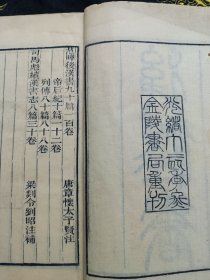 金陵書局重刊
范曄後漢書九十篇一百卷 唐章懷太子賢注
帝后紀十篇十二卷
列傳八十篇八十八卷
司馬彪續漢書志八篇三十卷 梁剡令劉昭注補